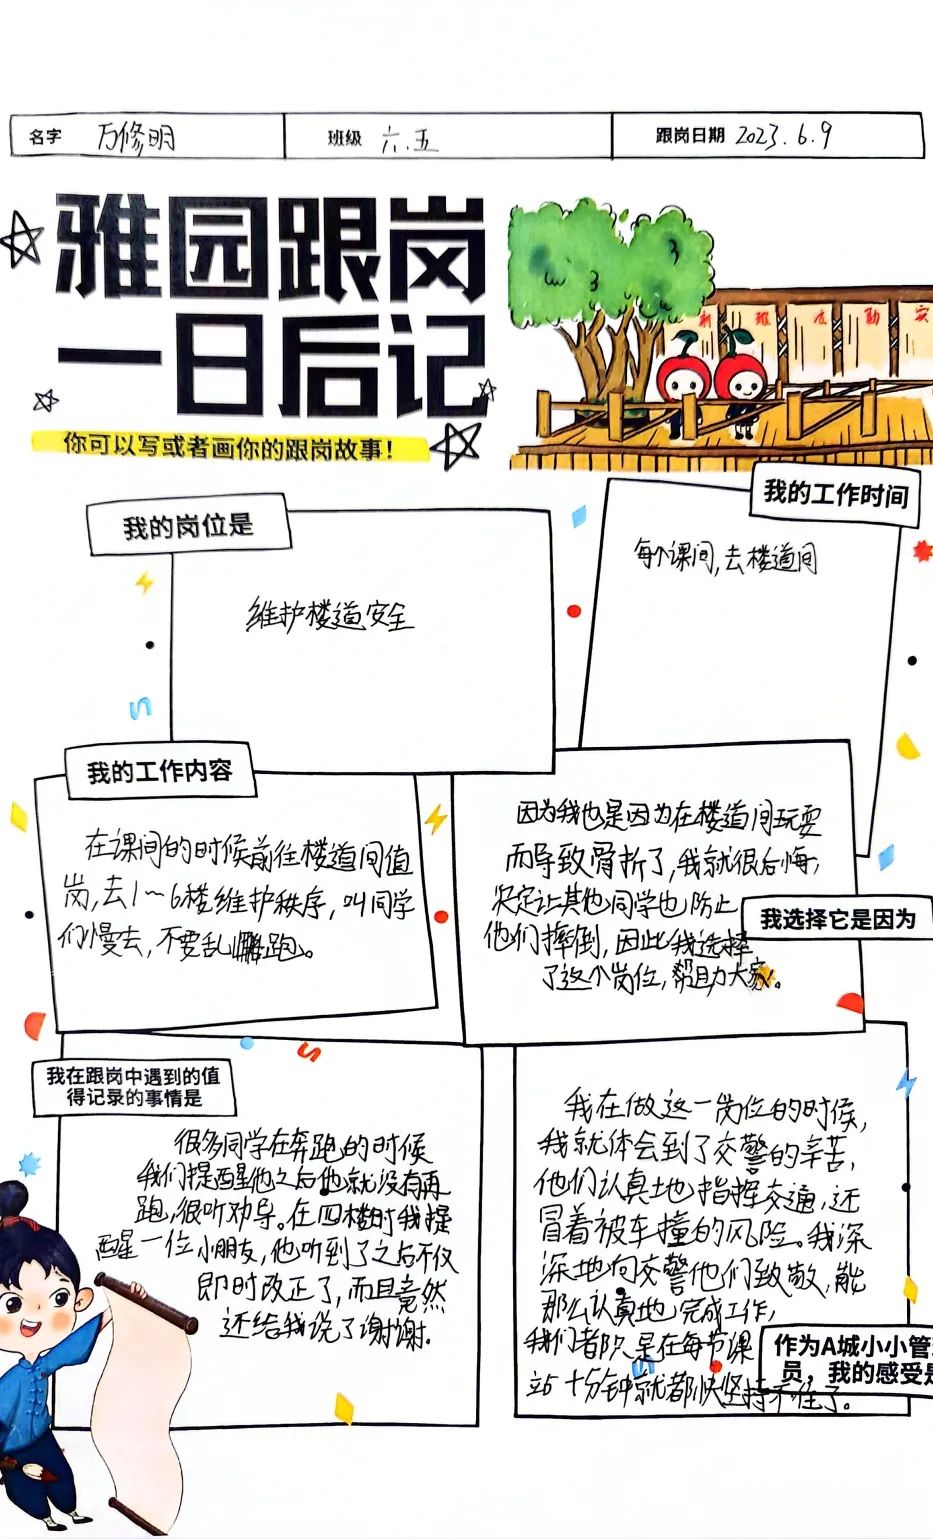 名字 万修明 班级 六.五 跟岗日期 2023.6.9
雅园跟岗
一日后记
你可以写或者画你的跟岗故事！
新 雅 友 勤 实
我的岗位是
维护楼道安全
我的工作时间
每个课间，去楼道间
我的工作内容
在课间的时候前往楼道间值
岗，去1～6楼维护秩序，叫同学
们慢去，不要乱蹦跑。
我选择它是因为
因为我也是因为在楼道间玩耍
而导致骨折了，我就很后悔，
决定让其他同学也防止
他们摔倒，因此我选择
了这个岗位，帮助大家。
我在跟岗中遇到的值
得记录的事情是
很多同学在奔跑的时候
我们提醒他之后他就没有再
跑，很听劝导。在四楼时我提
醒一位小朋友，他听到了之后不仅
即时改正了，而且竟然
还给我说了谢谢。
作为A城小小管
员，我的感受是
我在做这一岗位的时候，
我就体会到了交警的辛苦，
他们认真地指挥交通，还
冒着被车撞的风险。我深
深地向交警他们致敬，能
那么认真地完成工作，
我们者队是在每节课
站十分钟就都快坚持不住了。